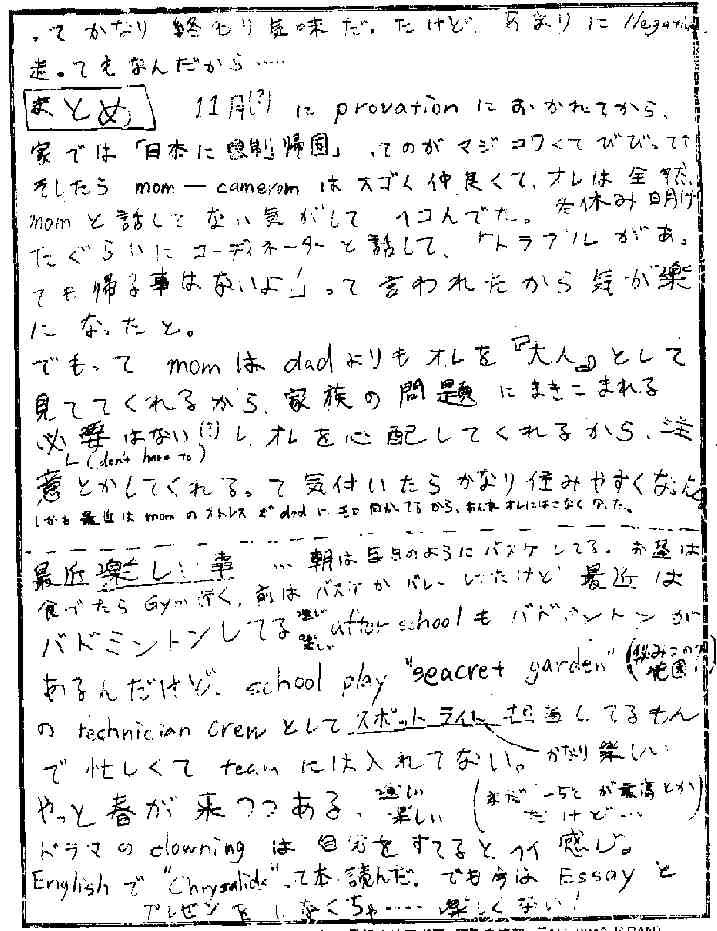 ってかなり終わり気味だ。だけど、あまりに Negative
送ってもなんだから……
まとめ 11月(?)に provationにおかれてから、
家では「日本に強制帰国」ってのがマジコワくてびびってて
そしたら mom — cameronはスゴく仲良くて、オレは全然
momと話してない気がしてヘコんでた。冬休み明け
たぐらいにコーディネーターと話して、「トラブルがあっ
ても帰る事はないよ」って言われたから気が楽
になったと。
でもって momは dadよりもオレを『大人』として
見ててくれるから、家族の問題にまきこまれる
必要はない(?)し、オレを心配してくれるから、注
(don't have to)
意とかしてくれる。って気付いたらかなり住みやすくなった。
しかも最近はmomのストレスがdadに 向かってるから、あんまオレにはこなくなった。
最近楽しい事 …朝は毎日のようにバスケしてる。お昼は
食べたらGym行く、前はバスケかバレーしてたけど最近は
バドミントンしてる 楽しい 楽しい after schoolもバドミントンが
あるんだけど、school play "seacret garden" (秘みつの花園)
の technician crewとしてスポットライト担当してるもん
で忙しくて teamには入れてない。かなり楽しい
やっと春が来つつある、楽しい 楽しい (まだ -5℃が最高とか
だけど…)
ドラマの clowning は自分をすてると、イイ感じ。
Englishで "Chrysalids"って本読んだ。でも今は Essayと
プレゼンをしなくちゃ…… 楽しくない!